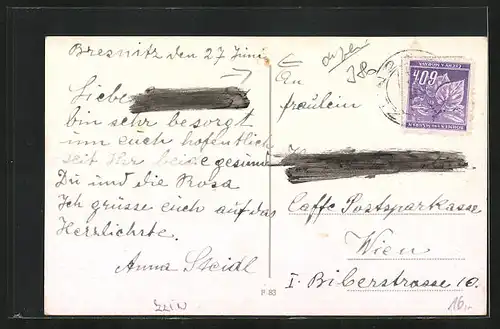 Bresnitz den 27 Juni
Liebe
bin sehr besorgt
um euch hofentlich
seit Ihr beide gesund
Du und die Rosa
Ich grüsse euch auf das
Herzlichste.
Anna Steidl
An
fräulein
Caffe Postsparkasse
Wien
I. Biberstrasse 10.
60h
ČECHY A MORAVA
BÖHMEN UND MÄHREN
P 83
16,-